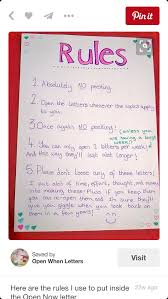 Pin it
Rules
1. Absolutely NO peeking!
2. Open the letters whenever the label applies
to you.
3. Once again NO peeking! (unless you
are having a bad
week!)
4. You can only open 2 letters per week!
And this way they'll last alot longer!
5. Please don't loose any of these letters;
I put alot of time, effort, thought, and money
into making these. Plus if you keep them
you can re-open them and I'm sure they'll
give you when you look back on
them in a few years!
Saved by
Open When Letters
Visit
Here are the rules I use to put inside
the Open Now letter